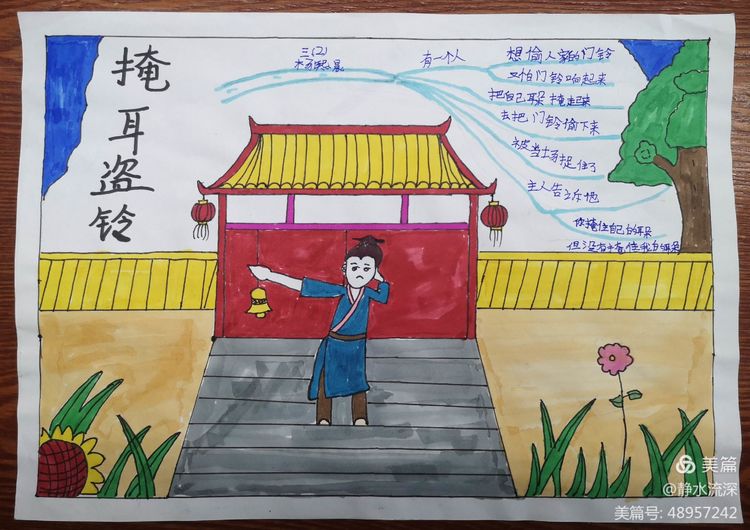 掩耳盗铃
三(2)
有一个人
想偷人家的门铃
又怕门铃响起来
把自己耳朵掩起来
去把门铃偷下来
被当场捉住了
主人告诉他
你掩住自己的耳朵
但没有掩住我的耳朵
美篇
@静水流深
美篇号: 48957242